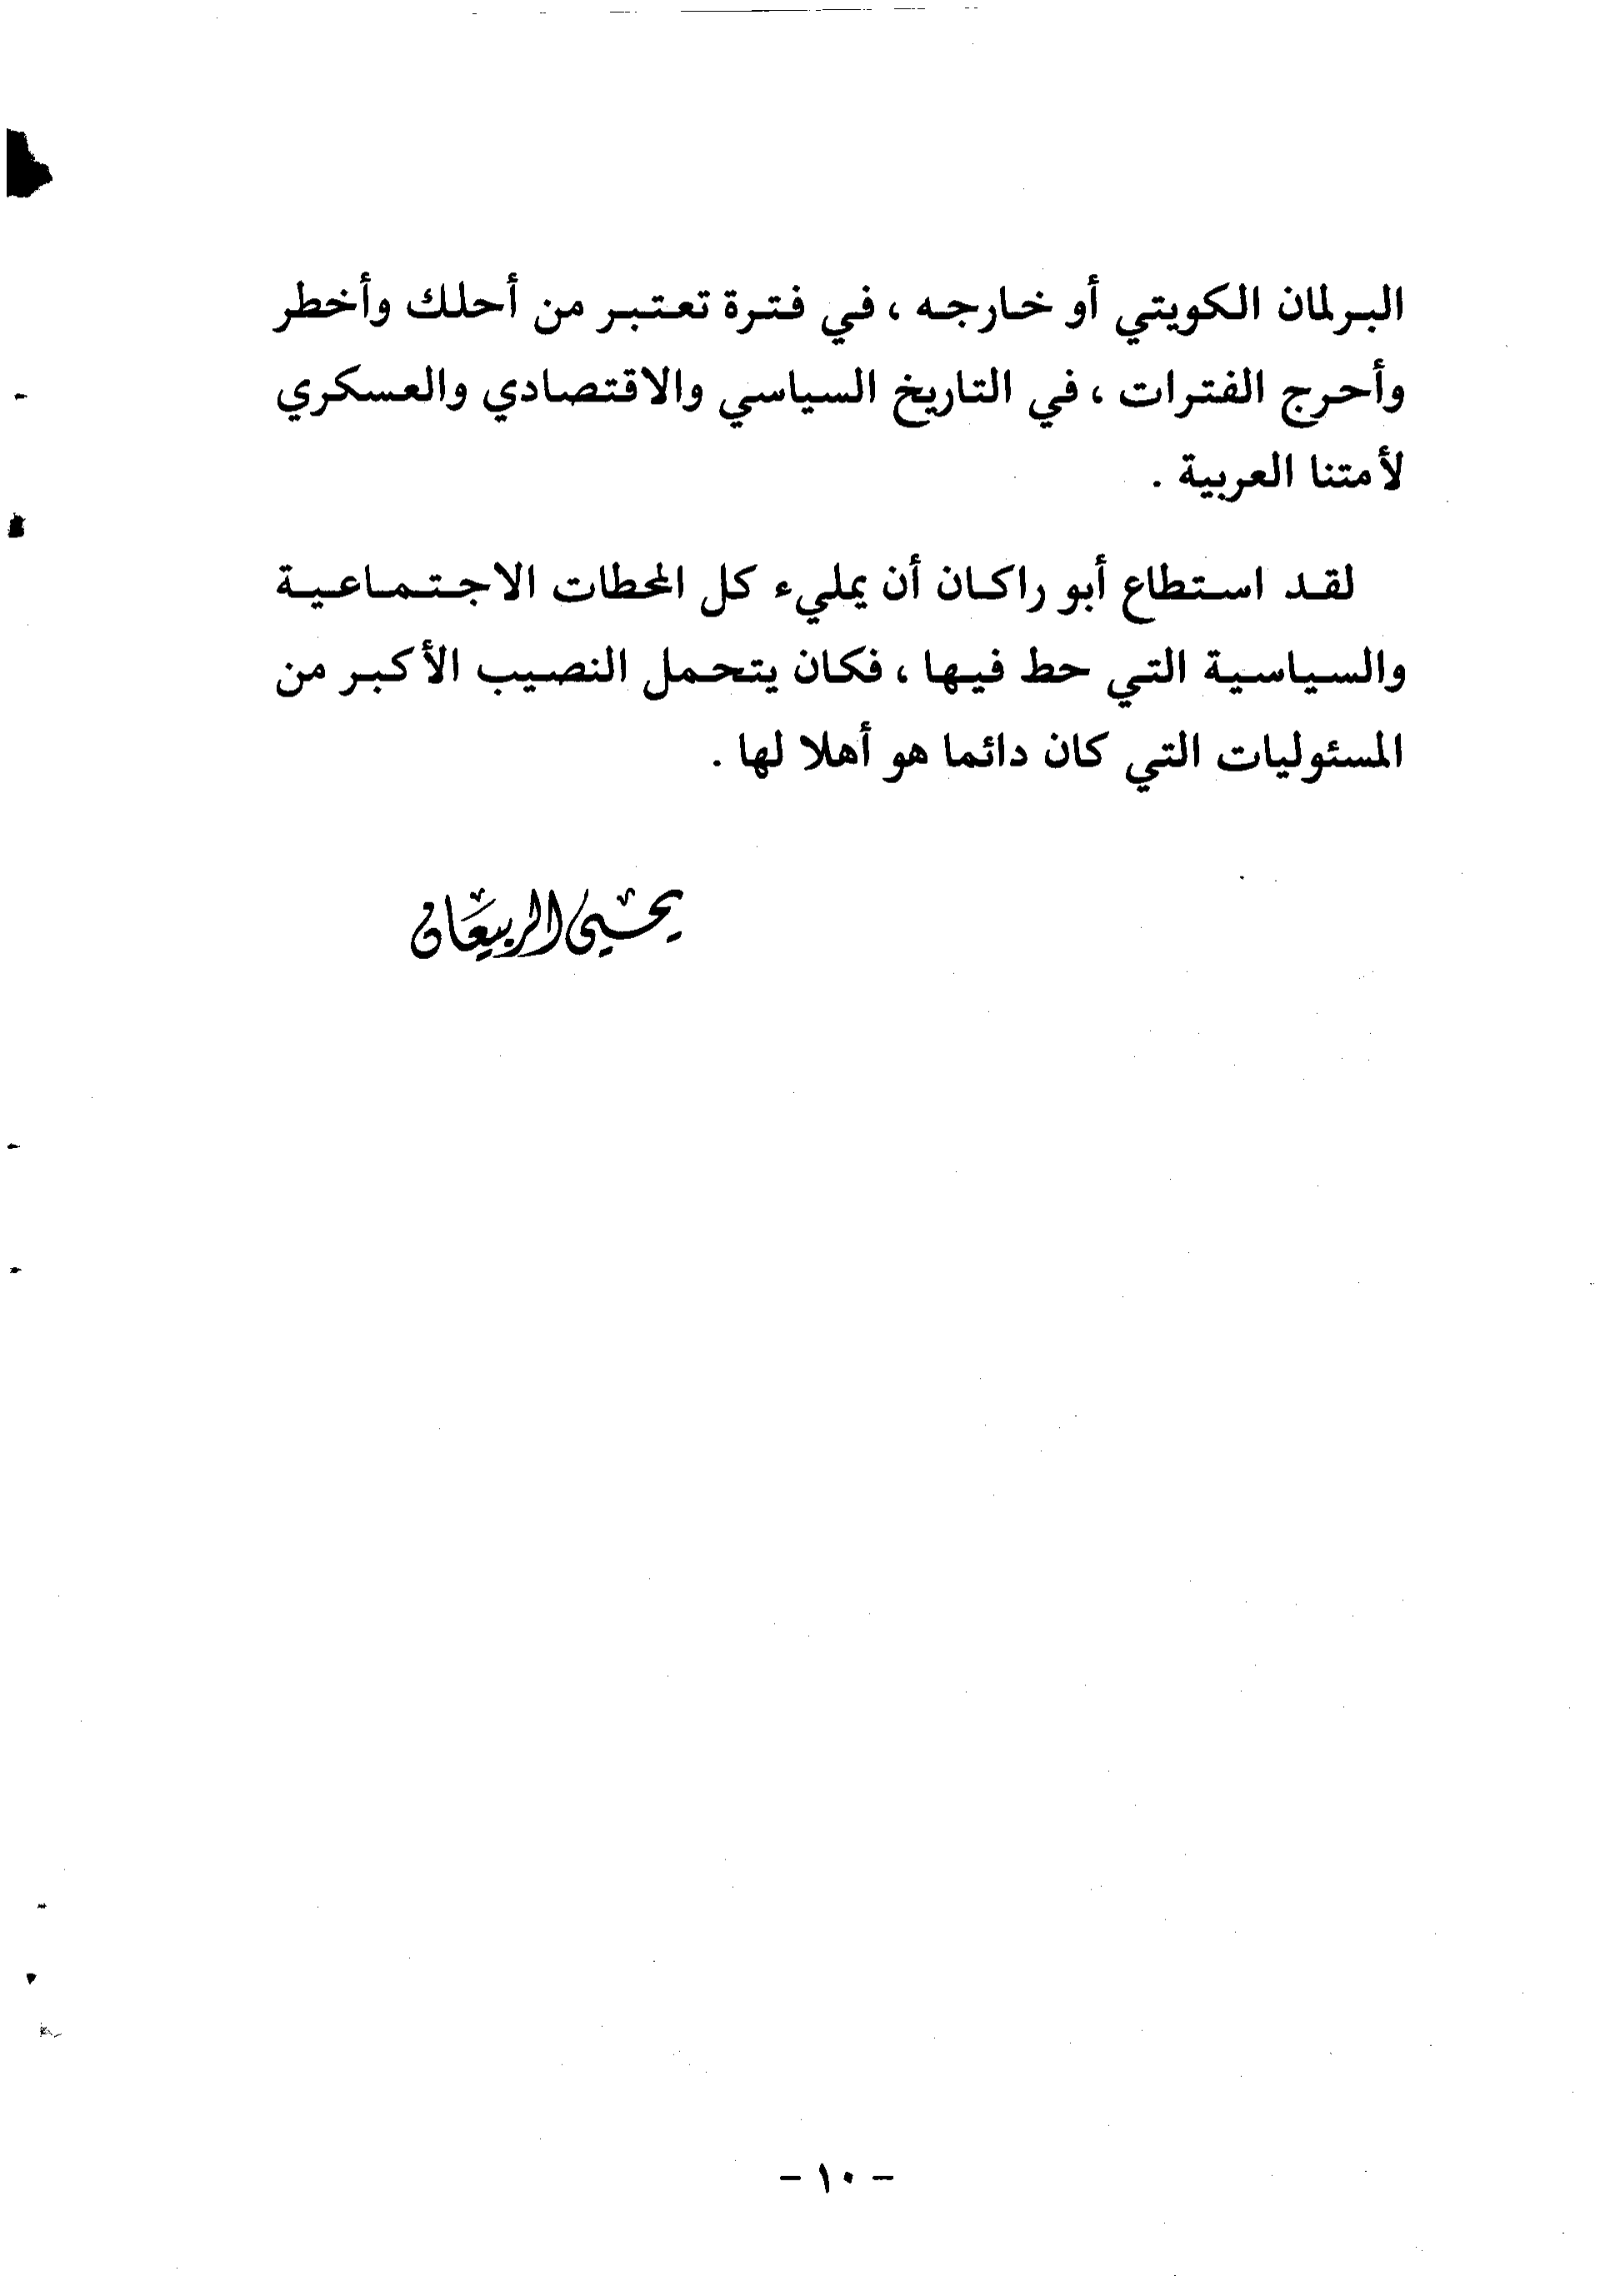 البرلمان الكويتي أو خارجه ، في فترة تعتبر من أحلك وأخطر
وأحرج الفترات ، في التاريخ السياسي والاقتصادي والعسكري
لأمتنا العربية .
لقد استطاع أبو راكان أن يمليء كل المحطات الاجتماعية
والسياسية التي حط فيها ، فكان يتحمل النصيب الأكبر من
المسئوليات التي كان دائما هو أهلا لها .
يحيى الربيعان
- ١٠ -